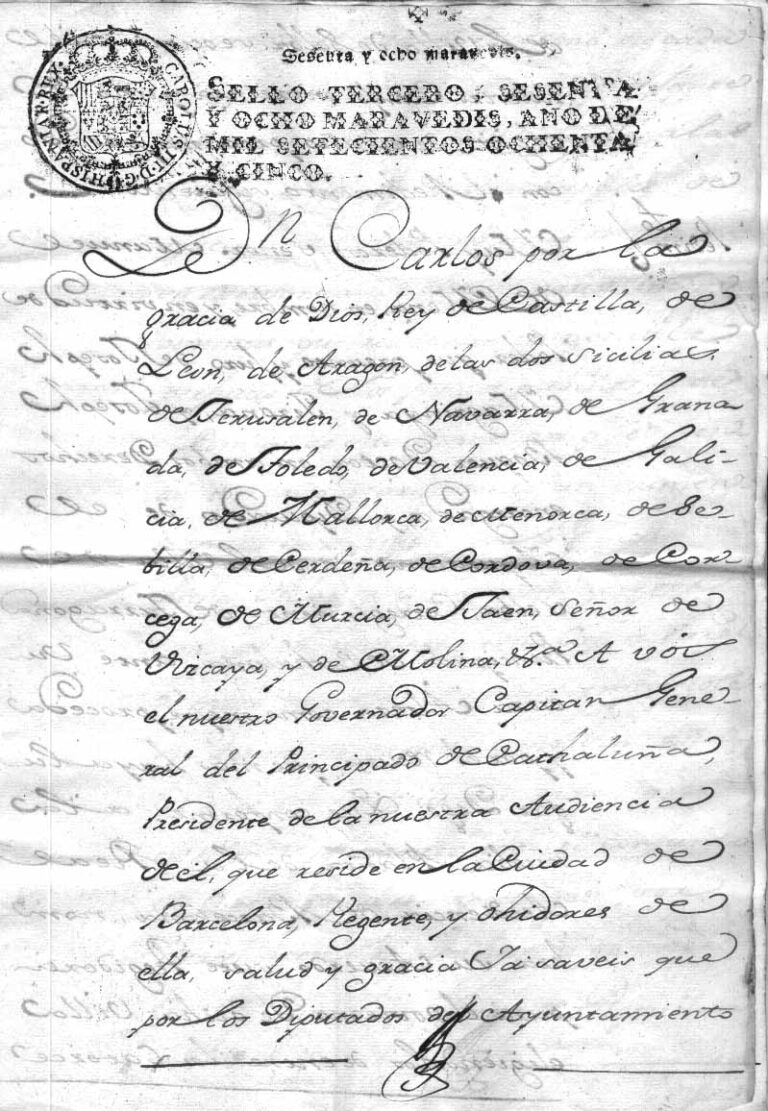 Sesenta y ocho maravedis.
SELLO TERCERO, SESENTA
Y OCHO MARAVEDIS, AÑO DE
MIL SETECIENTOS OCHENTA
Y CINCO.
CAROLUS III D.G. HISPANIAR. REX
Dn Carlos por la
gracia de Dios, Rey de Castilla, de
Leon, de Aragon, de las dos Sicilias
de Jerusalen, de Navarra, de Grana
da, de Toledo, de Valencia, de Gali-
cia, de Mallorca, de Menorca, de Se-
billa, de Cerdeña, de Cordova, de Cor-
cega, de Murcia, de Jaen, Señor de
Vizcaya, y de Molina, &.a A vós
el nuestro Governador Capitan Gene-
ral del Principado de Cathaluña,
Presidente de la nuestra Audiencia
de el, que reside en la Ciudad de
Barcelona, Regente, y Ohidores de
ella, salud y gracia Ya saveis que
por los Diputados del Ayuntamiento